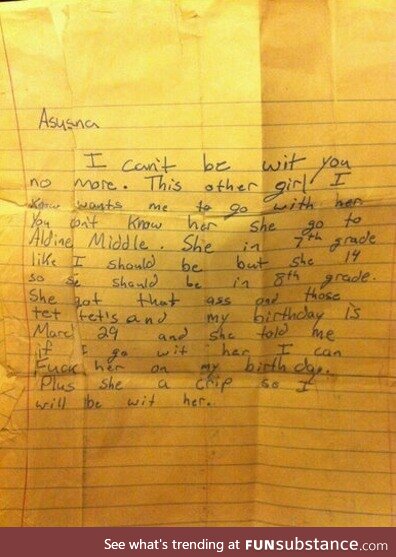 Asusna
I can't be wit you
no more. This other girl I
know wants me to go with her
You don't know her she go to
Aldine Middle. She in 7th grade
like I should be but she 14
so se should be in 8th grade.
[omitted] and my birthday is
Marcl 29 and she told me
if I go wit her I can
[omitted]
Plus she a crip so I
will be wit her.
See what's trending at FUNsubstance.com